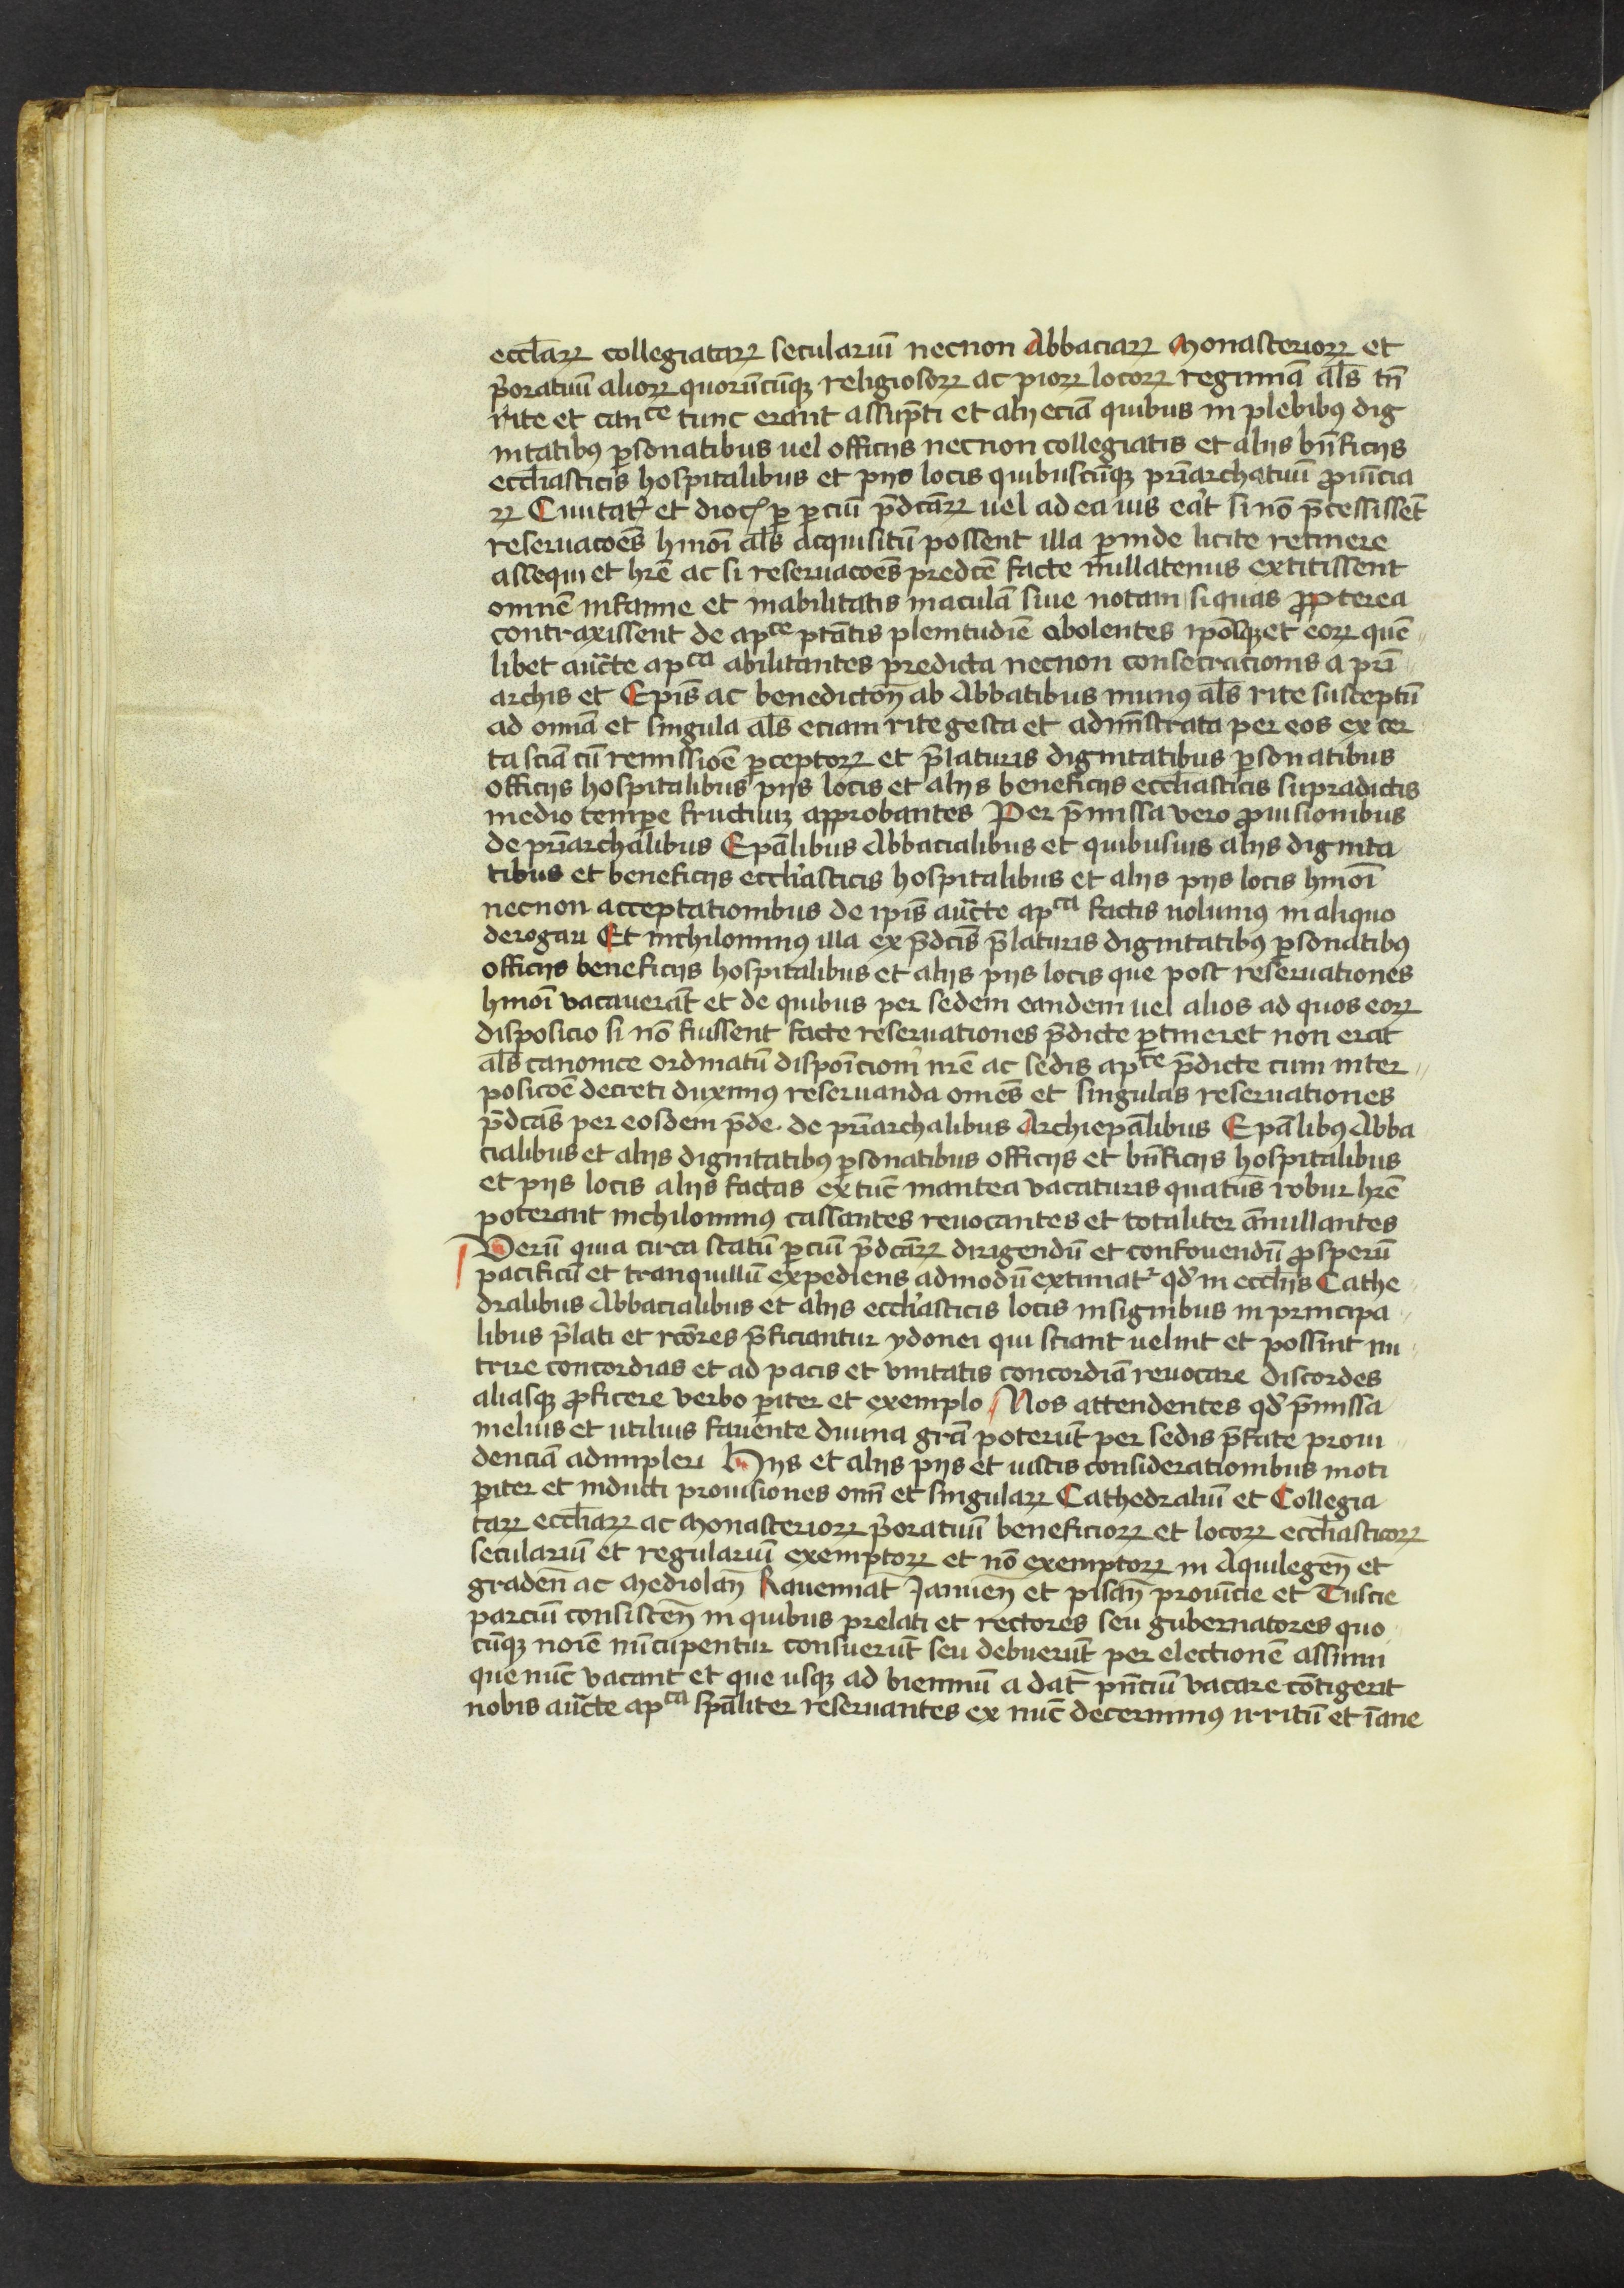 eccl̄arꝝ collegiatarꝝ seculariū necnon Abbaciarꝝ Monasteriorꝝ et
p̄oratuū aliorꝝ quorūcūqꝫ religiosorꝝ ac piorꝝ locorꝝ regimīa al̄s tn̄
rite et canᶜᵉ tunc erant assūpti et alij eciā quibus in plebibꝰ dig
nitatibꝰ ꝑsonatibus uel officijs necnon collegiatis et alijs bn̄ficijs
eccl̄iasticis hospitalibus et pijs locis quibuscūqꝫ pr̄iarchatuū ꝓuīcia
rꝝ Ciuitatꝭ et dioc̄ ꝑ ꝑciū p̄dcārꝝ uel ad ea ius eāt si nō p̄cessissēt
reseruacōes hm̄oi al̄s acquisitū possent illa ꝑinde licite retinere
assequi et hr̄e ac si reseruacōes predcē facte nullatenus extitissent
omnē infamie et inabilitatis maculā siue notam si quas ꝓpterea
contraxissent de apᶜᵉ ptātis plenitudīe abolentes ipōsqꝫ et eorꝝ quē
libet auc̄te apᶜᵃ abilitantes predicta necnon consecracionis a pr̄i
archis et Epīs ac benedictōn̄ ab Abbatibus munꝰ al̄s rite susceptū
ad omīa et singula al̄s eciam rite gesta et admīstrata per eos ex cer
ta sciā cū remissiōe ꝑceptorꝝ et p̄laturis dignitatibus ꝑsonatibus
officijs hospitalibus pijs locis et alijs beneficijs eccl̄iasticis supradictis
medio tempe fructuū approbantes Per p̄missa vero ꝓuisionibus
de pr̄iarchalibus Epālibus Abbacialibus et quibusuis alijs dignita
tibus et beneficijs eccl̄iasticis hospitalibus et alijs pijs locis hm̄oi
necnon acceptationibus de ip̄is auc̄te apᶜᵃ factis nolumꝰ in aliquo
derogari Et nichilominꝰ illa ex p̄dcīs p̄laturis dignitatibꝰ ꝑsonatibꝰ
officijs beneficijs hospitalibus et alijs pijs locis que post reseruationes
hm̄oi vacauerāt et de quibus per sedem eandem uel alios ad quos eorꝝ
disposicio si nō fuissent facte reseruationes p̄dicte ꝑtineret non erat
al̄s canonice ordinatū dispoīcioni nr̄e ac sedis apᶜᵉ p̄dicte cum inter
posicōe decreti duximꝰ reseruanda omēs et singulas reseruationes
p̄dcās per eosdem p̄de. de pr̄iarchalibus Archiepālibus Epālibꝰ Abba
cialibus et alijs dignitatibꝰ ꝑsonatibus officijs et bn̄ficijs hospitalibus
et pijs locis alijs factas ex tūc inantea vacaturis quatūs robur hr̄e
poterant nichilominꝰ cassantes reuocantes et totaliter ānullantes
Verū quia circa statū ꝑciū p̄dcārꝝ dirigendū et confouendū ꝓsperū
pacificū et tranquillū expediens admodū extimatꝭ qd̓ in eccl̄ijs Cathe
dralibus Abbacialibus et alijs eccl̄iasticis locis insignibus in principa
libus p̄lati et rcōres p̄ficiantur ydonei qui sciant uelint et possint nu
trire concordias et ad pacis et vnitatis concordiā reuocare discordes
aliasqꝫ ꝓficere verbo ꝑiter et exemplo Nos attendentes qd̓ p̄missa
melius et utilius fauente diuina gr̄a poterūt per sedis p̄fate proui
denciā adimpleri Hijs et alijs pijs et iustis considerationibus moti
ꝑiter et inducti prouisiones omī et singularꝝ Cathedraliū et Collegia
tarꝝ eccl̄iarꝝ ac Monasteriorꝝ p̄oratuū beneficiorꝝ et locorꝝ eccl̄iasticorꝝ
seculariū et regulariū exemptorꝝ et nō exemptorꝝ in Aquilegen̄ et
graden̄ ac Mediolan̄ Rauennat̄ Januen̄ et pisan̄ prouīcie et Tuscie
parciū consisten̄ in quibus prelati et rectores seu gubernatores quo
cūqꝫ noīe nūcupentur consueuerūt seu debuerūt per electionē assumi
que nūc vacant et que usqꝫ ad bienniū a dat̄ pn̄ciū vacare cōtigerit
nobis auc̄te apᶜᵃ sp̄aliter reseruantes ex nūc decernimꝰ irritū et īane